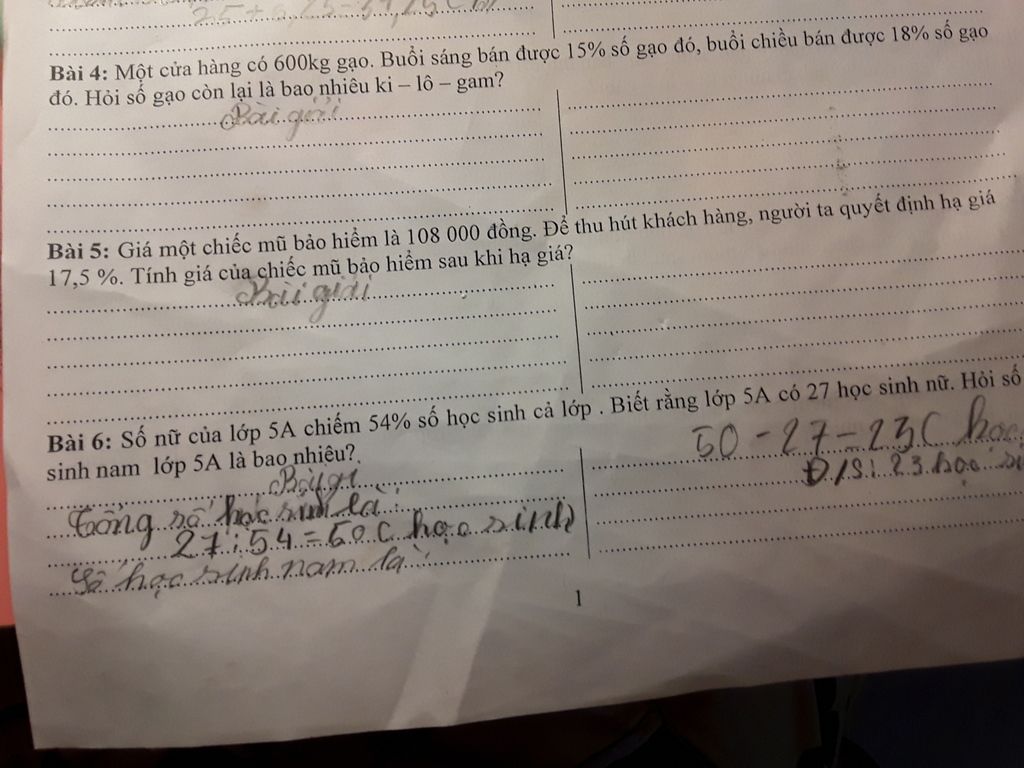 25 + 6,25 = 31,25 cm
Bài 4: Một cửa hàng có 600kg gạo. Buổi sáng bán được 15% số gạo đó, buổi chiều bán được 18% số gạo
đó. Hỏi số gạo còn lại là bao nhiêu ki – lô – gam?
Bài giải
Bài 5: Giá một chiếc mũ bảo hiểm là 108 000 đồng. Để thu hút khách hàng, người ta quyết định hạ giá
17,5 %. Tính giá của chiếc mũ bảo hiểm sau khi hạ giá?
Bài giải
Bài 6: Số nữ của lớp 5A chiếm 54% số học sinh cả lớp . Biết rằng lớp 5A có 27 học sinh nữ. Hỏi số
sinh nam lớp 5A là bao nhiêu?
Bài gi
Tổng số học sinh là:
27 : 54 = 50 ( học sinh)
Số học sinh nam là:
50 - 27 = 23 ( học
Đ/S: 23 học si
1